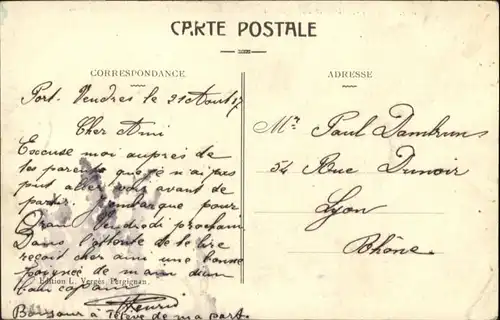 CARTE POSTALE
CORRESPONDANCE
ADRESSE
Port-Vendres le 31 Aout 17
Cher Ami
Excuse moi aupres de
tes parents que je n'ai pas
put aller voir avant de
partir. J'embarque pour
Oran Vendredi prochain
Dans l'attente de te lire
reçoit cher ami une bonne
poignée de main d'un
bon copain
Henri
Bonjour à de ma part.
Edition L. Vergès Perpignan.
Mr Paul Dambrun
54 Rue Dunoir
Lyon
Rhône.